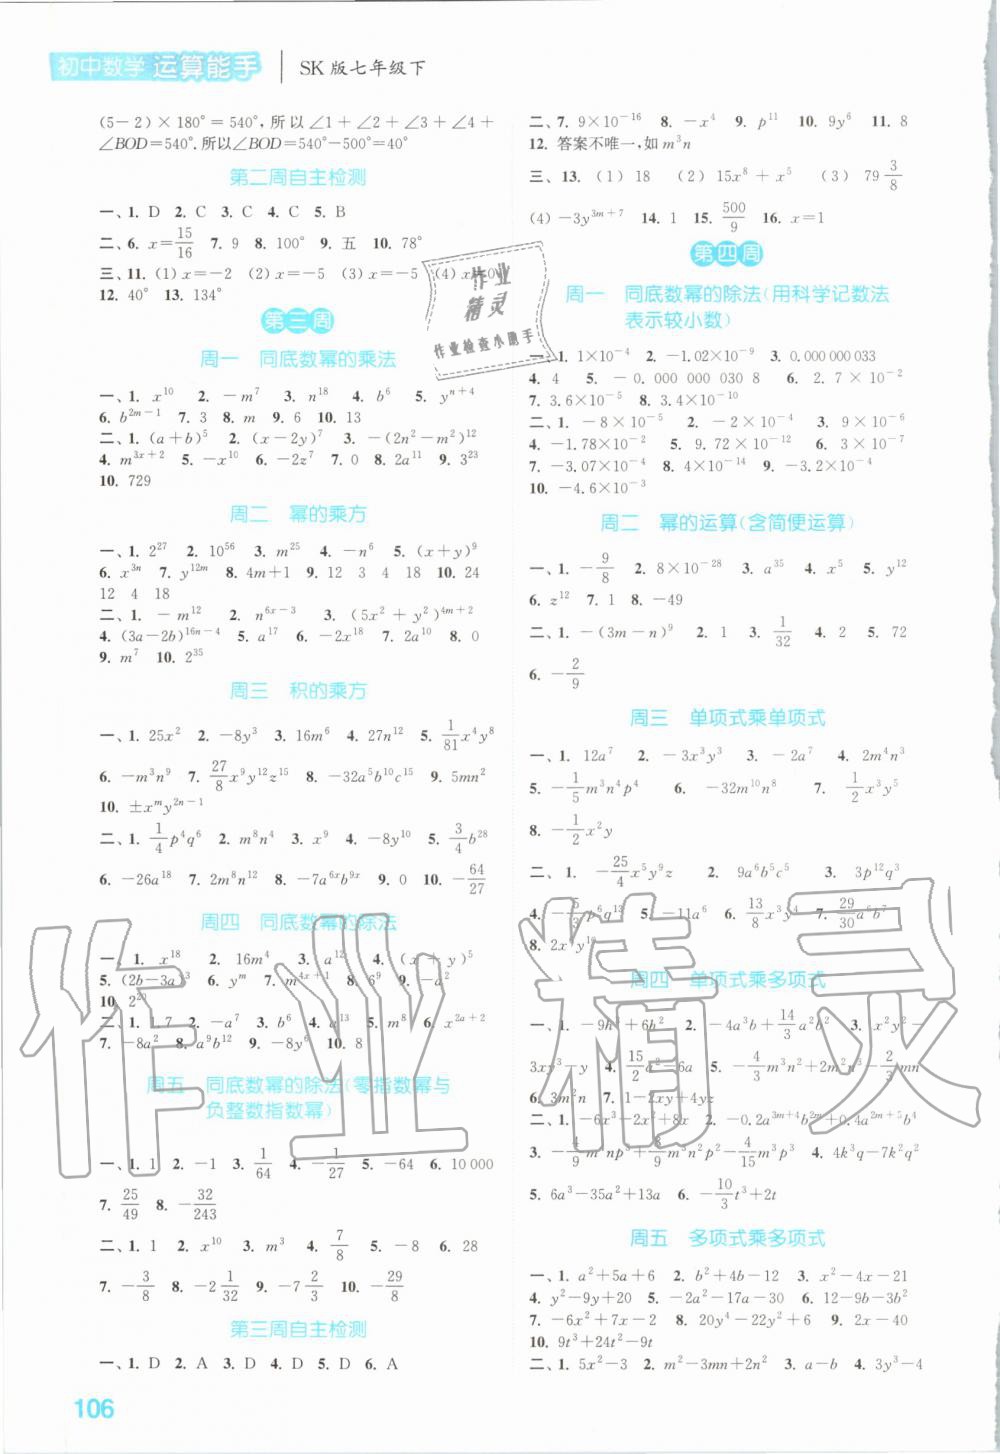 初中数学 运算能手 SK版七年级下
(5-2)×180°=540°,所以∠1+∠2+∠3+∠4+
∠BOD=540°.所以∠BOD=540°-500°=40°
第二周自主检测
一、1. D 2. C 3. C 4. C 5. B
二、6. x=15/16 7. 9 8. 100° 9. 五 10. 78°
三、11. (1) x=-2 (2) x=-5 (3) x=-5 (4) x=0
12. 40° 13. 134°
第三周
周一 同底数幂的乘法
一、1. x^10 2. -m^7 3. n^18 4. b^6 5. y^(n+4)
6. b^(2m-1) 7. 3 8. m 9. 6 10. 13
二、1. (a+b)^5 2. (x-2y)^7 3. -(2n^2-m^2)^12
4. m^(3x+2) 5. -x^10 6. -2z^7 7. 0 8. 2a^11 9. 3^23
10. 729
周二 幂的乘方
一、1. 2^27 2. 10^56 3. m^25 4. -n^6 5. (x+y)^9
6. x^(3n) 7. y^(12m) 8. 4m+1 9. 12 3 4 18 10. 24
12 4 18
二、1. -m^12 2. n^(6x-3) 3. (5x^2+y^2)^(4m+2)
4. (3a-2b)^(16n-4) 5. a^17 6. -2x^18 7. 2a^10 8. 0
9. m^7 10. 2^35
周三 积的乘方
一、1. 25x^2 2. -8y^3 3. 16m^6 4. 27n^12 5. 1/81 x^4y^8
6. -m^3n^9 7. 27/8 x^9y^12z^15 8. -32a^5b^10c^15 9. 5mn^2
10. ±x^m y^(2n-1)
二、1. 1/4 p^4q^6 2. m^8n^4 3. x^9 4. -8y^10 5. 3/4 b^28
6. -26a^18 7. 2m^8n^12 8. -7a^(6x)b^(9x) 9. 0 10. -64/27
周四 同底数幂的除法
一、1. x^18 2. 16m^4 3. a^12 4. (x+y)^5
5. (2b-3a)^3 6. y^m 7. m^(4x+1) 8. 6^9 9. -a
10. 2
二、1. 7 2. -a^7 3. b^6 4. a^13 5. m^8 6. x^(2a+2)
7. -8a^2 8. a^9b^12 9. -8y^6 10. 8
周五 同底数幂的除法(零指数幂与
负整数指数幂)
一、1. 1 2. -1 3. 1/64 4. -1/27 5. -64 6. 10 000
7. 25/49 8. -32/243
二、1. 1 2. x^10 3. m^3 4. 7/8 5. -8 6. 28
7. -3/8 8. -2 1/32 9. -7 2/3 10. -29/8
第三周自主检测
一、1. D 2. A 3. D 4. D 5. D 6. A
106
二、7. 9×10^-16 8. -x^4 9. p^11 10. 9y^6 11. 8
12. 答案不唯一,如 m^3n
三、13. (1) 18 (2) 15x^8+x^5 (3) 79 3/8
(4) -3y^(3m+7) 14. 1 15. 500/9 16. x=1
第四周
周一 同底数幂的除法(用科学记数法
表示较小数)
一、1. 1×10^-4 2. -1.02×10^-9 3. 0.000 000 033
4. 4 5. -0.000 000 030 8 6. 2.7×10^-8
7. 3.6×10^-5 8. 3.4×10^-10
二、1. -8×10^-5 2. -2×10^-4 3. 9×10^-6
4. -1.78×10^-2 5. 9.72×10^-12 6. 3×10^-7
7. -3.07×10^-4 8. 4×10^-14 9. -3.2×10^-4
10. -4.6×10^-3
周二 幂的运算(含简便运算)
一、1. -9/8 2. 8×10^-28 3. a^35 4. x^5 5. y^12
6. z^12 7. 1 8. -49
二、1. -(3m-n)^9 2. 1 3. 1/32 4. 2 5. 72
6. -2/9
周三 单项式乘单项式
一、1. 12a^7 2. -3x^3y^3 3. -2a^7 4. 2m^4n^3
5. -1/5 m^3n^4p^4 6. -32m^10n^8 7. 1/2 x^3y^5
8. -1/2 x^2y
二、1. -25/4 x^5y^9z 2. 9a^6b^5c^5 3. 3p^12q^3
4. -5/3 p^6q^13 5. -11a^6 6. 13/8 x^3y^4 7. 29/30 a^5b^7
8. 2x y
周四 单项式乘多项式
一、1. -9h+6h^2 2. -4a^3b+14/3 a^2b^2 3. x^2y^2-
3xy^3-y 4. 15/2 a^2-6a 5. -4/3 m^3n^2+2m^2n-2/3 mn
6. 3m^2n 7. 1-2xy+4yz
二、1. -6x^3-2x^2+8x 2. -0.2a^(3m+4)b^(2m)+0.4a^(2m+5)b^4
3. -4/9 m^3np^3+8/9 m^3n^2p^2-4/15 m^3p^3 4. 4k^3q-7k^2q^2
5. 6a^3-35a^2+13a 6. -10/3 t^3+2t
周五 多项式乘多项式
一、1. a^2+5a+6 2. b^2+4b-12 3. x^2-4x-21
4. y^2-9y+20 5. -2a^2-17a-30 6. 12-9b-3b^2
7. -6x^2+7x-2 8. 20y^4-22y^2+6 9. 2x-40
10. 9t^3+24t^2-9t
二、1. 5x^2-3 2. m^2-3mn+2n^2 3. a-b 4. 3y^3-4
作业
精灵
作业检查小助手
作业精灵